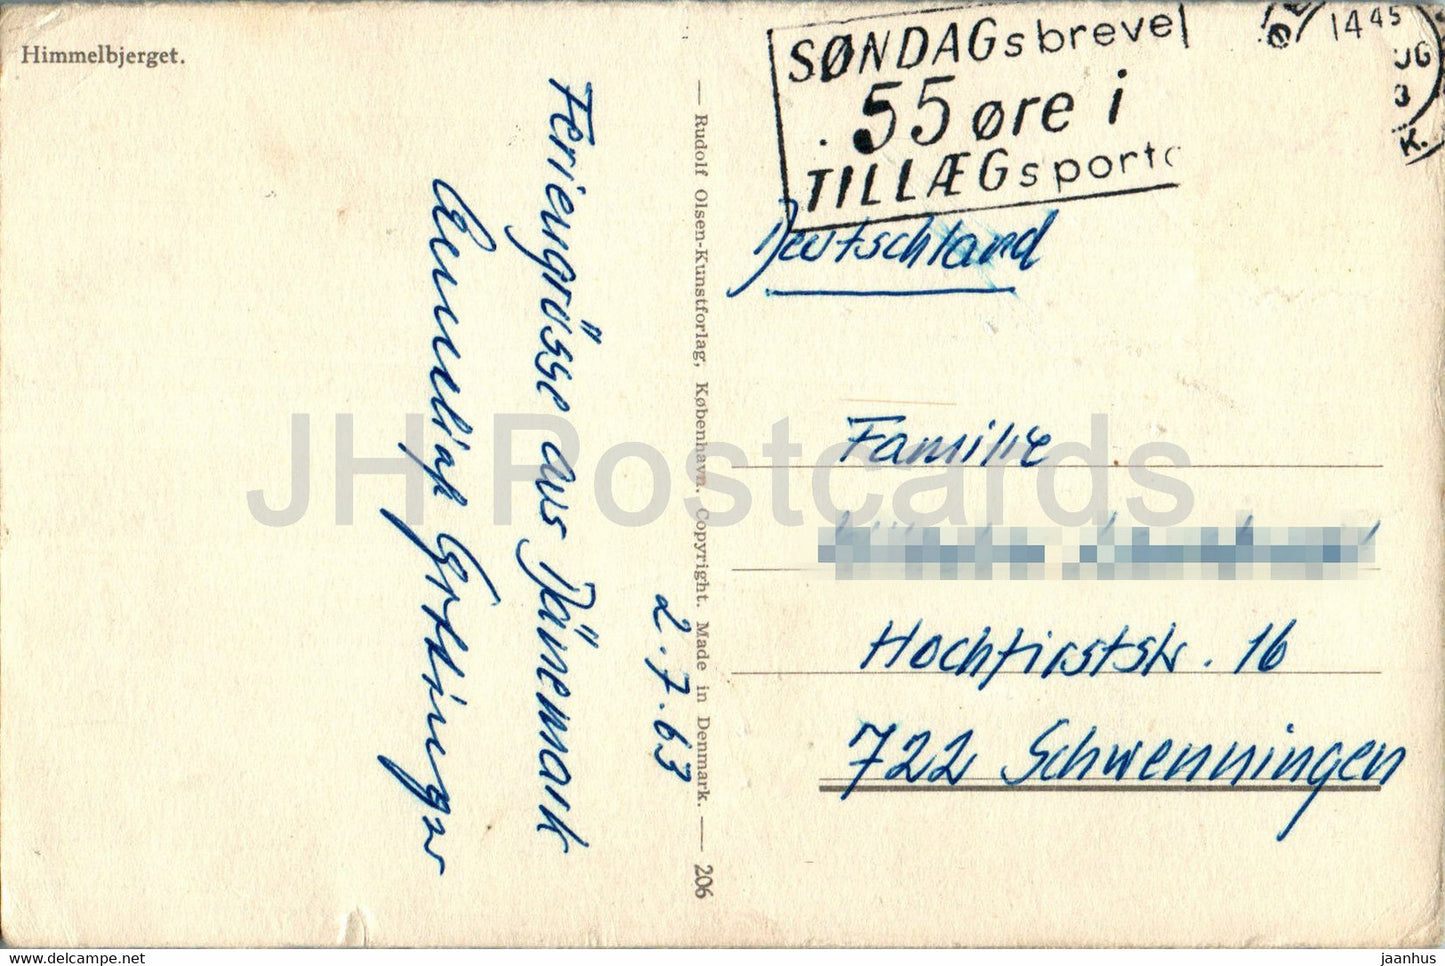 Himmelbjerget.
SØNDAGsbrevel
55 øre i
TILLÆGsporto
1445
UG
3
K.
Deutschland
Familie
Hochfirststr. 16
722 Schwenningen
2.7.63
Feriengrüsse aus Dänemark
— Rudolf Olsen-Kunstforlag, København. Copyright. Made in Denmark. — 206
JH Postcards
www.delcampe.net
jaanhus